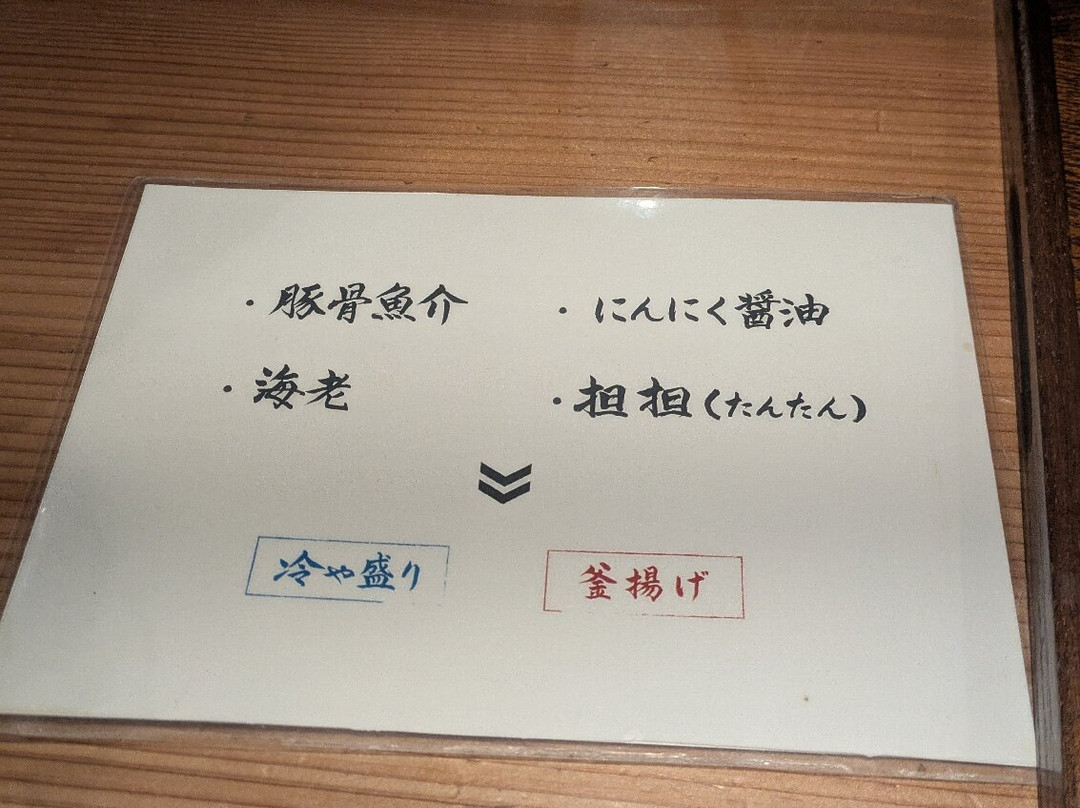 ・豚骨魚介 ・にんにく醤油
・海老 ・担担(たんたん)
冷や盛り 釜揚げ